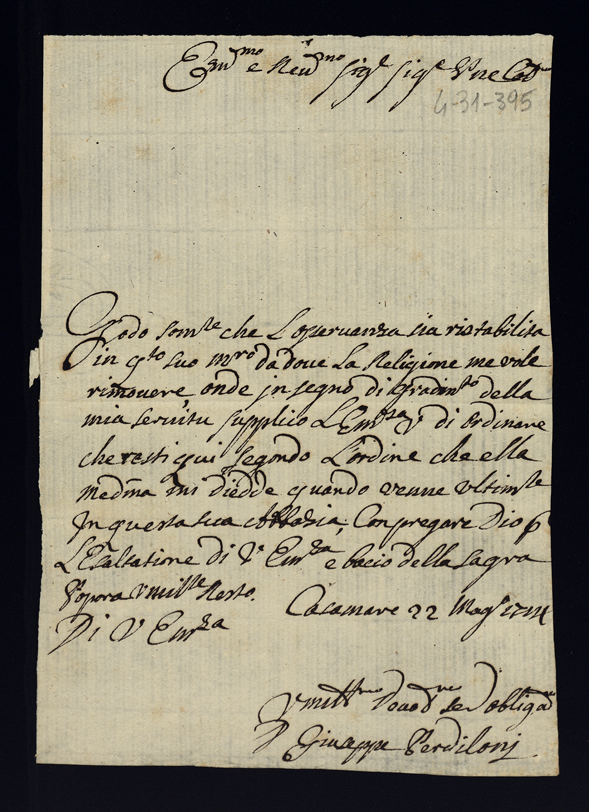 Em.mo e Reu.mo Sig.r Sig.r
4-31-395
Godo som.te che L'osseruanza sia ristabilita
in q.to suo m.ro da doue La Religione me vole
rimouere, onde in segno di gradim.to della
mia seruitu supplico L'Em.za V di ordinare
che resti qui segondo L'ordine che ella
medma mi diedde quando uenne ultim.te
In questa sua Abbazia, Con pregare Dio p
L'Esaltatione di V Em.za e bacio della sagra
Porpora Vmil.te Resto.
Casamare 22 Mag.o
Di V Em.za
Vmill.mo Deuo.mo ser obligat
Giuseppe Verdiloni